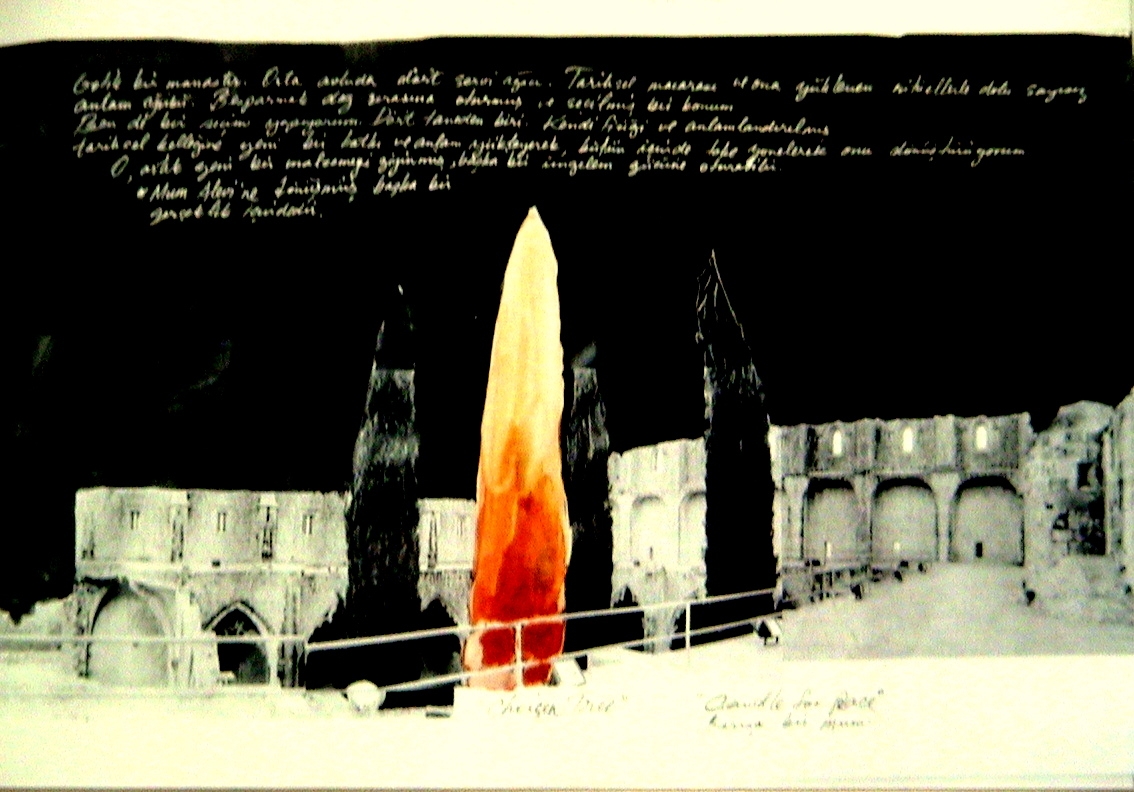 Gotik bir manastır. Orta avluda dört servi ağacı. Tarihsel macerası ve ona yüklenen ritüellerle dolu sayısız
anlam ağacı. Beşparmak dağ sırasına oturmuş ve seçilmiş bir konum
Ben de bir seçim yapıyorum. Dört taneden biri. Kendi fiziği ve anlamlandırılmış
tarihsel kelliğine yeni bir katkı ve anlam yükleyerek, bütün içinde teke yönelerek onu dönüştürüyorum
O, artık yeni bir malzemeyi giyinmiş, başka bir imgelem gücüne oturabilir.
"Mum Alevi'ne dönüşmüş başka bir
gerçeklik içindedir.
"Choisen Tree" "Candle for peace"
bir mum